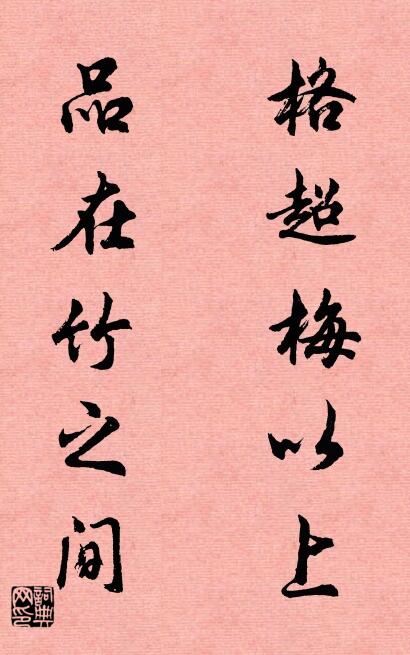 格超梅以上
品在竹之间
詞典网印